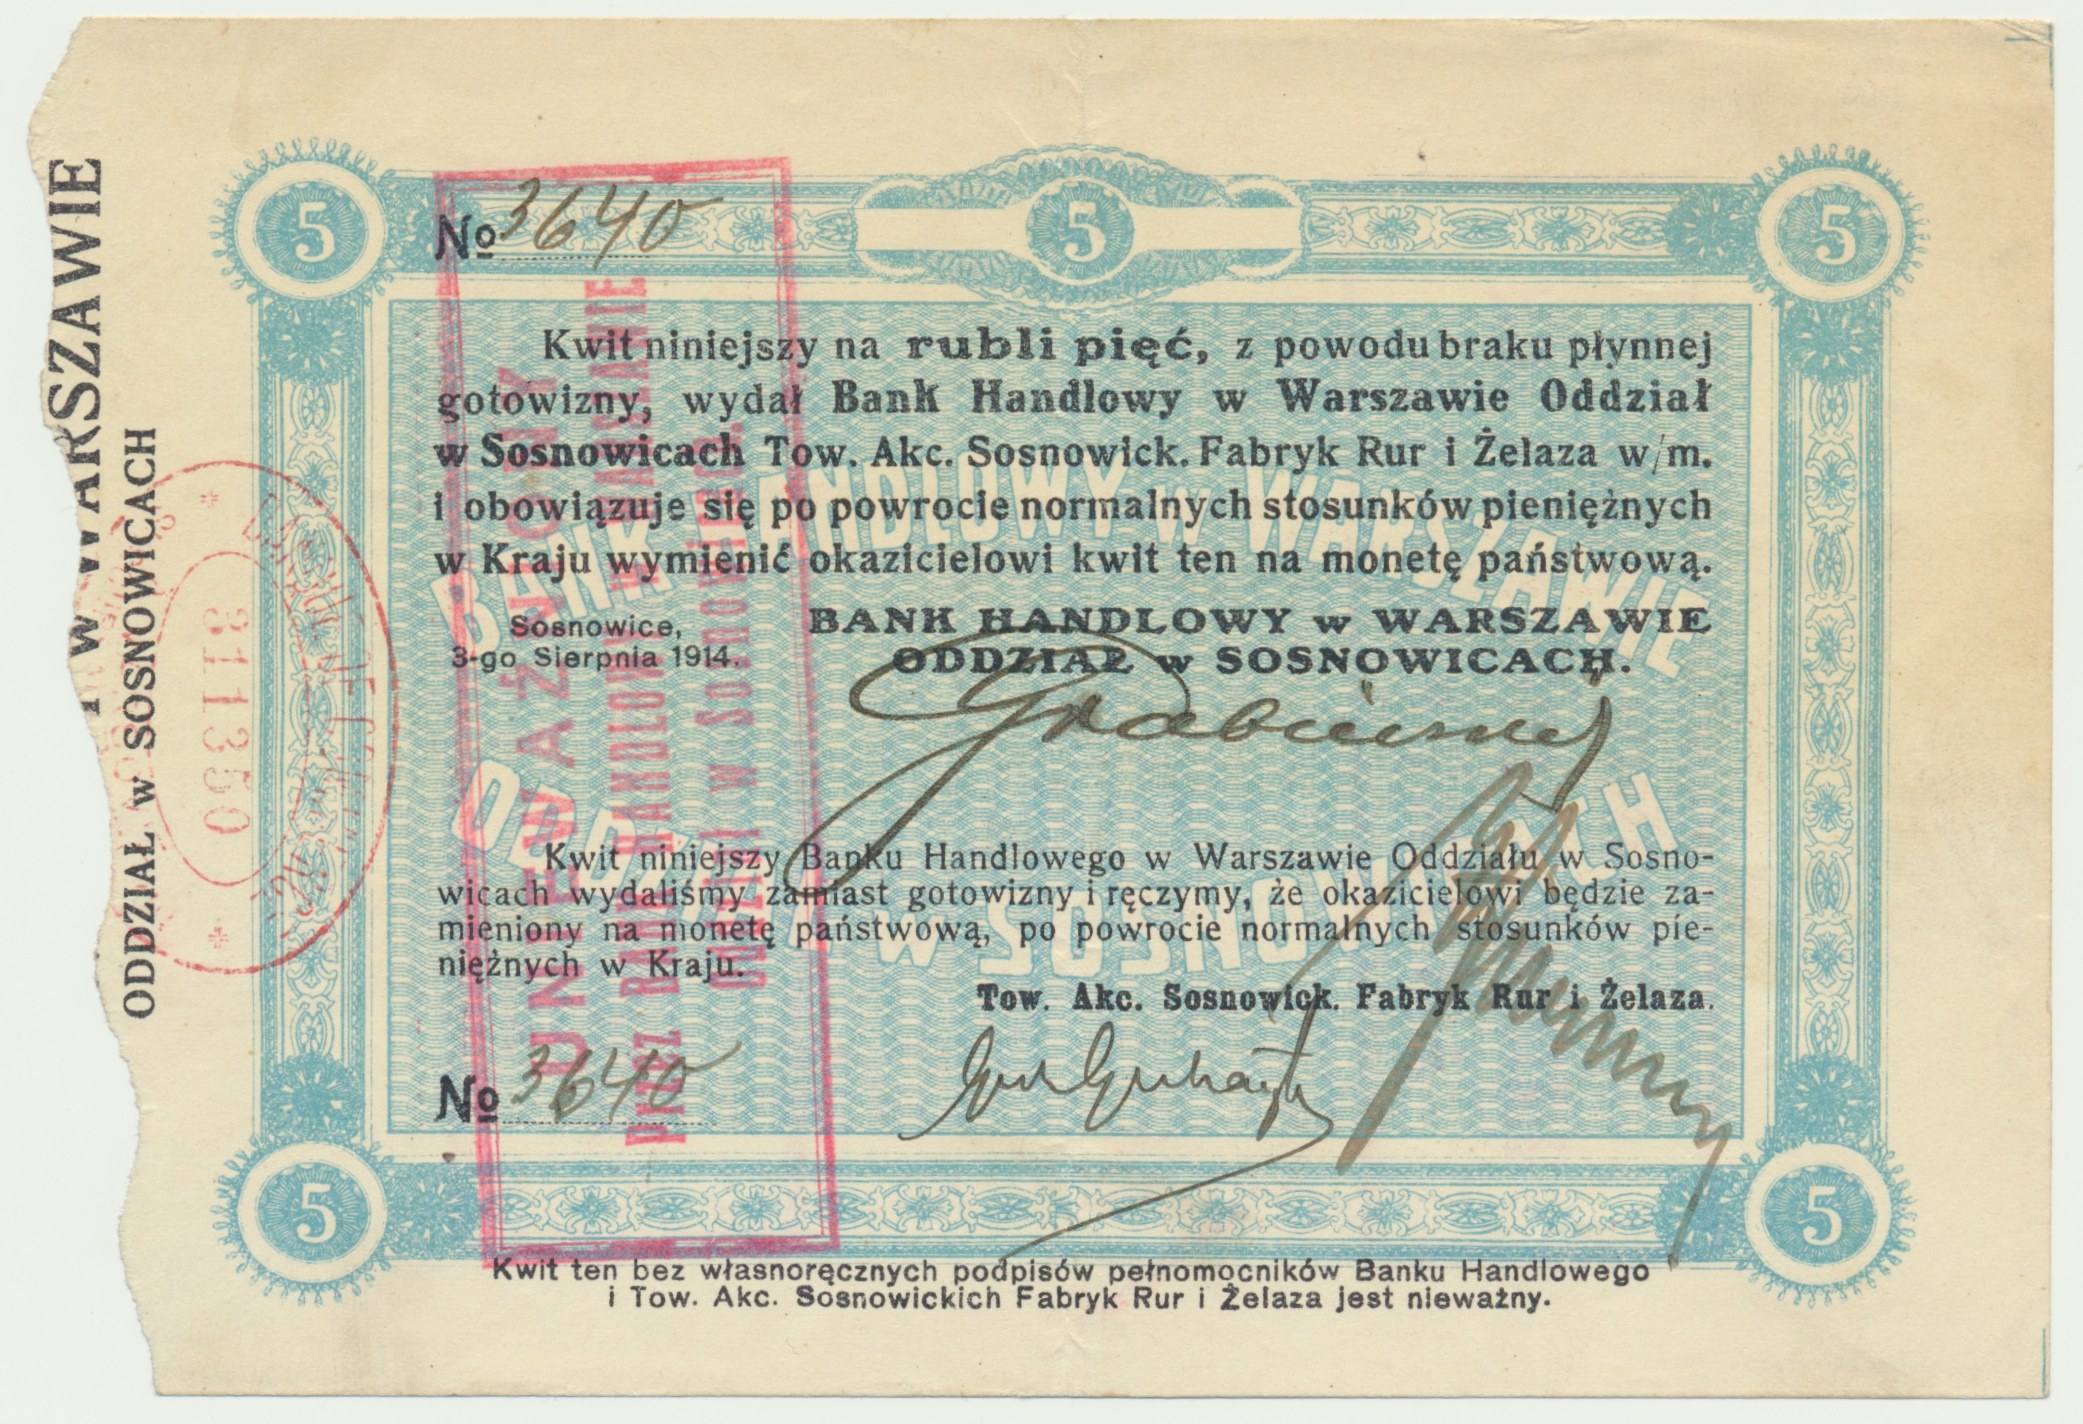 WARSZAWIE
ODDZIAŁ w SOSNOWICACH
5 5 5
№ 3640
Kwit niniejszy na rubli pięć, z powodu braku płynnej
gotowizny, wydał Bank Handlowy w Warszawie Oddział
w Sosnowicach Tow. Akc. Sosnowick. Fabryk Rur i Żelaza w/m.
i obowiązuje się po powrocie normalnych stosunków pieniężnych
w Kraju wymienić okazicielowi kwit ten na monetę państwową.
BANK HANDLOWY w WARSZAWIE
ODDZIAŁ w SOSNOWICACH
Sosnowice,
3-go Sierpnia 1914.
BANK HANDLOWY w WARSZAWIE
ODDZIAŁ w SOSNOWICACH.
Kwit niniejszy Banku Handlowego w Warszawie Oddziału w Sosno-
wicach wydaliśmy zamiast gotowizny i ręczymy, że okazicielowi będzie za-
mieniony na monetę państwową, po powrocie normalnych stosunków pie-
niężnych w Kraju.
Tow. Akc. Sosnowick. Fabryk Rur i Żelaza.
№ 3640
5 5
Kwit ten bez własnoręcznych podpisów pełnomocników Banku Handlowego
i Tow. Akc. Sosnowickich Fabryk Rur i Żelaza jest nieważny.
UNIEWAŻNIONY
PRZEZ BANK HANDLOWY w WARSZAWIE
ODDZIAŁ w SOSNOWICACH.
311350